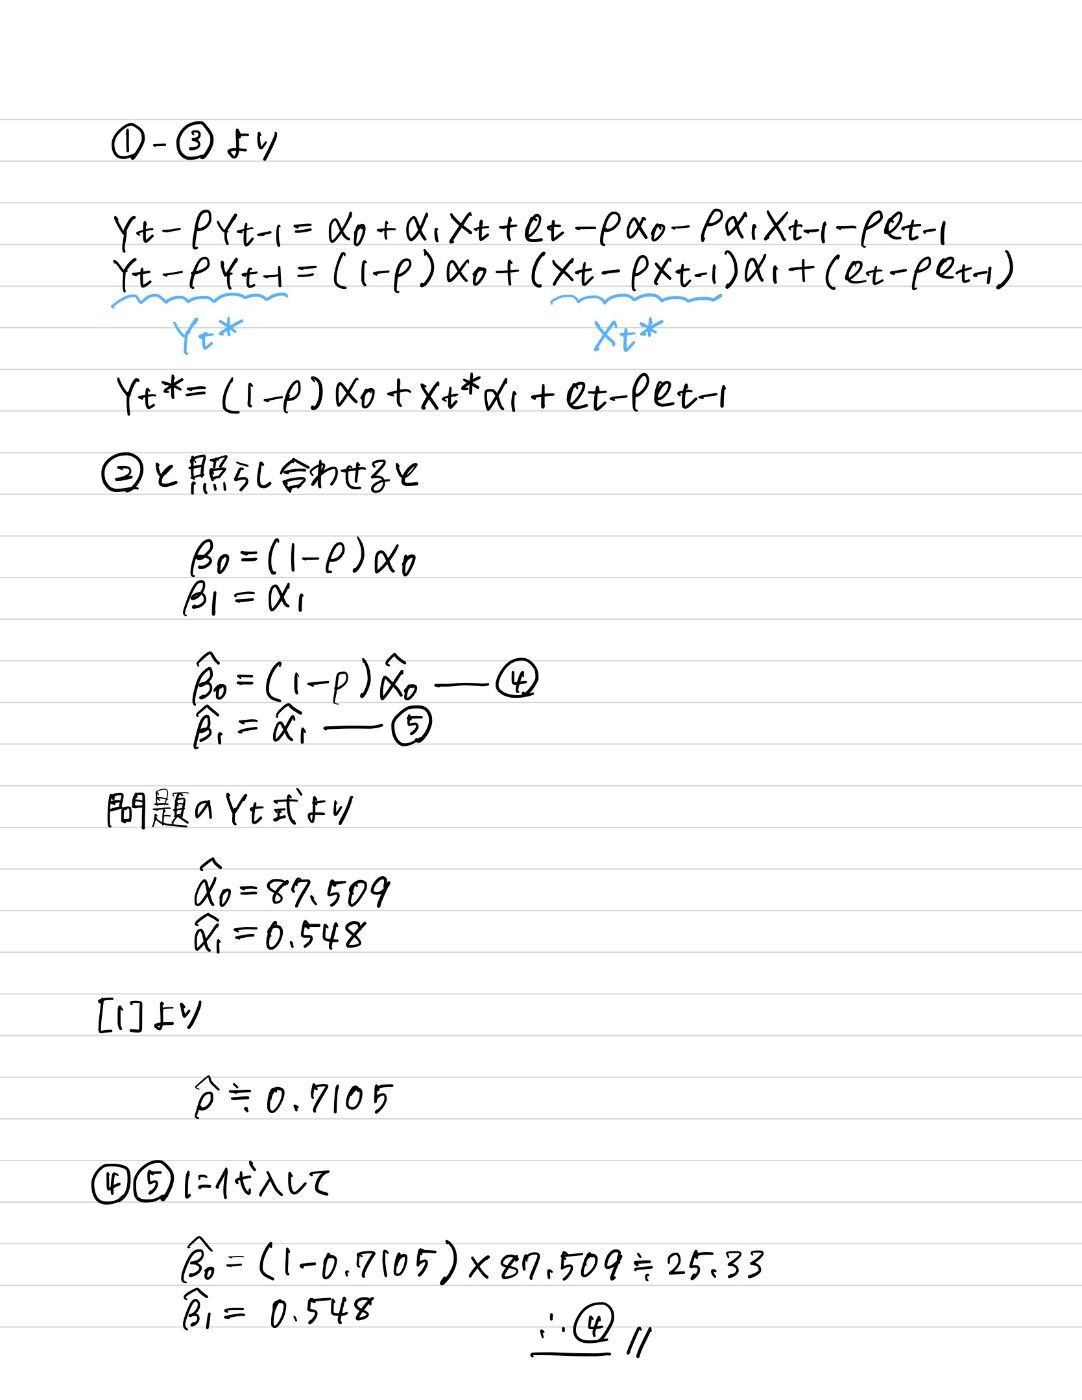 ①-③より
Yt-ρYt-1=α0+α1Xt+et-ρα0-ρα1Xt-1-ρet-1
Yt-ρYt-1=(1-ρ)α0+(Xt-ρXt-1)α1+(et-ρet-1)
Yt* Xt*
Yt*=(1-ρ)α0+Xt*α1+et-ρet-1
②と照らし合わせると
β0=(1-ρ)α0
β1=α1
β̂0=(1-ρ)α̂0 —④
β̂1=α̂1 —⑤
問題のYt式より
α̂0=87.509
α̂1=0.548
[1]より
ρ̂≒0.7105
④⑤に代入して
β̂0=(1-0.7105)×87.509≒25.33
β̂1=0.548
∴④//